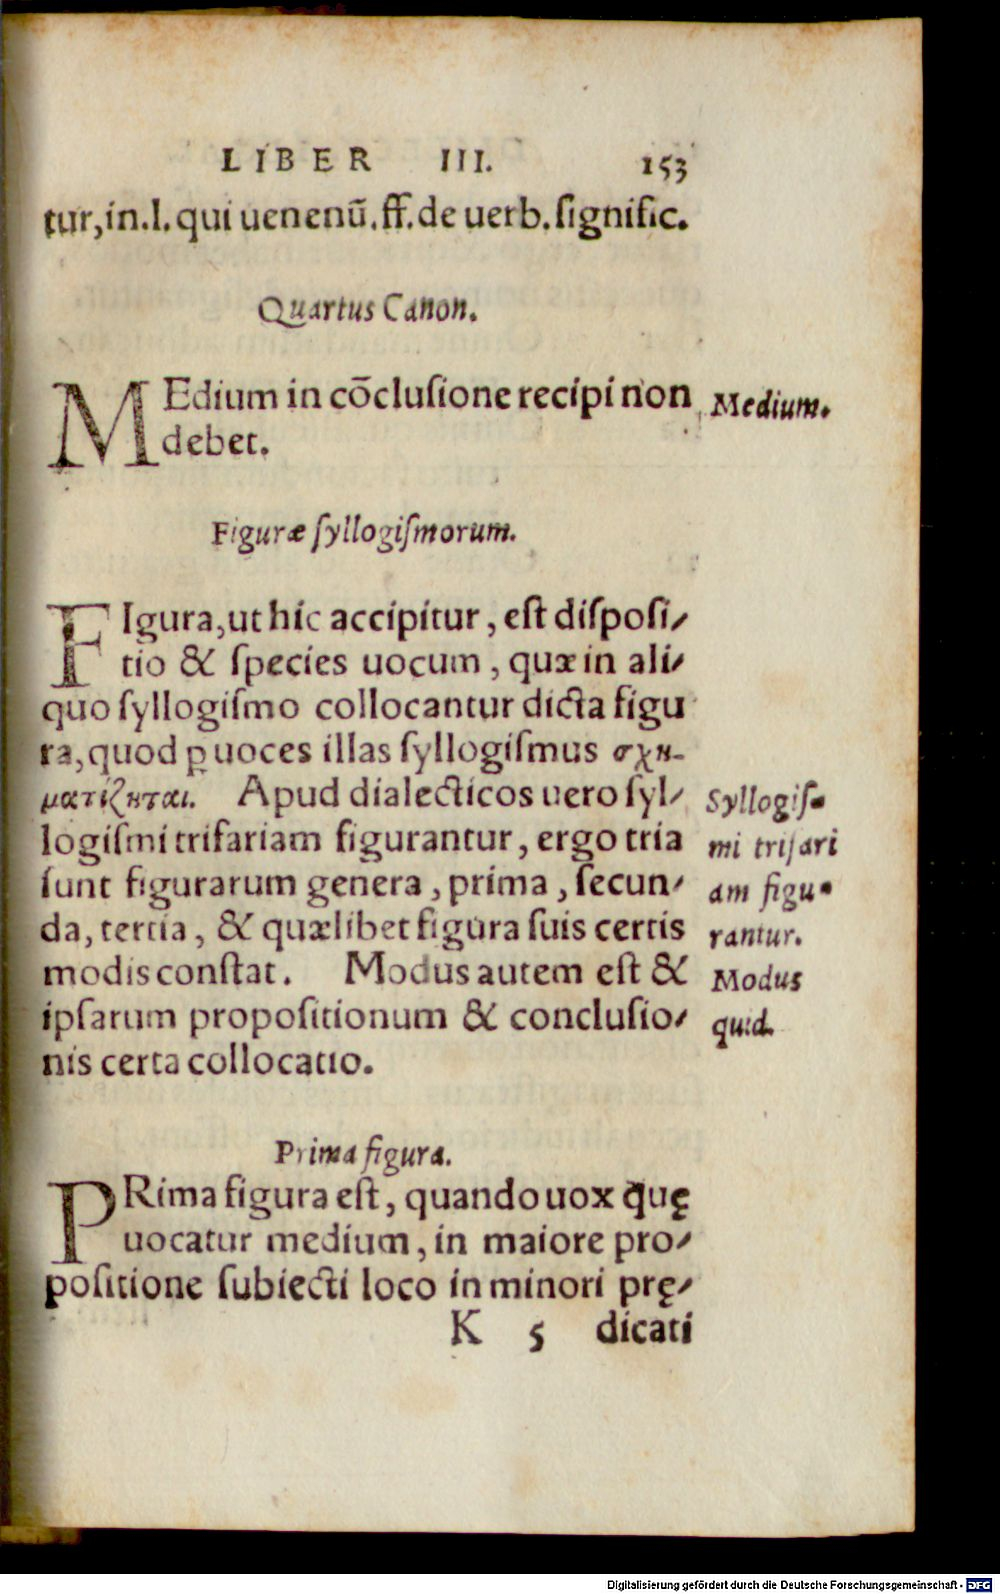 LIBER III. 153
tur, in. l. qui uenenū. ff. de uerb. signific.
Quartus Canon.
MEdium in cōclusione recipi non
debet.
Medium.
Figuræ syllogismorum.
FIgura, ut hic accipitur, est disposi-
tio & species uocum, quæ in ali-
quo syllogismo collocantur dicta figu
ra, quod ꝑ uoces illas syllogismus σχη-
ματίζηται. Apud dialecticos uero syl-
logismi trifariam figurantur, ergo tria
sunt figurarum genera, prima, secun-
da, tertia, & quælibet figura suis certis
modis constat. Modus autem est &
ipsarum propositionum & conclusio-
nis certa collocatio.
Syllogis-
mi trifari
am figu-
rantur.
Modus
quid.
Prima figura.
PRima figura est, quando uox quę
uocatur medium, in maiore pro-
positione subiecti loco in minori prę-
K 5 dicati
Digitalisierung gefördert durch die Deutsche Forschungsgemeinschaft - DFG